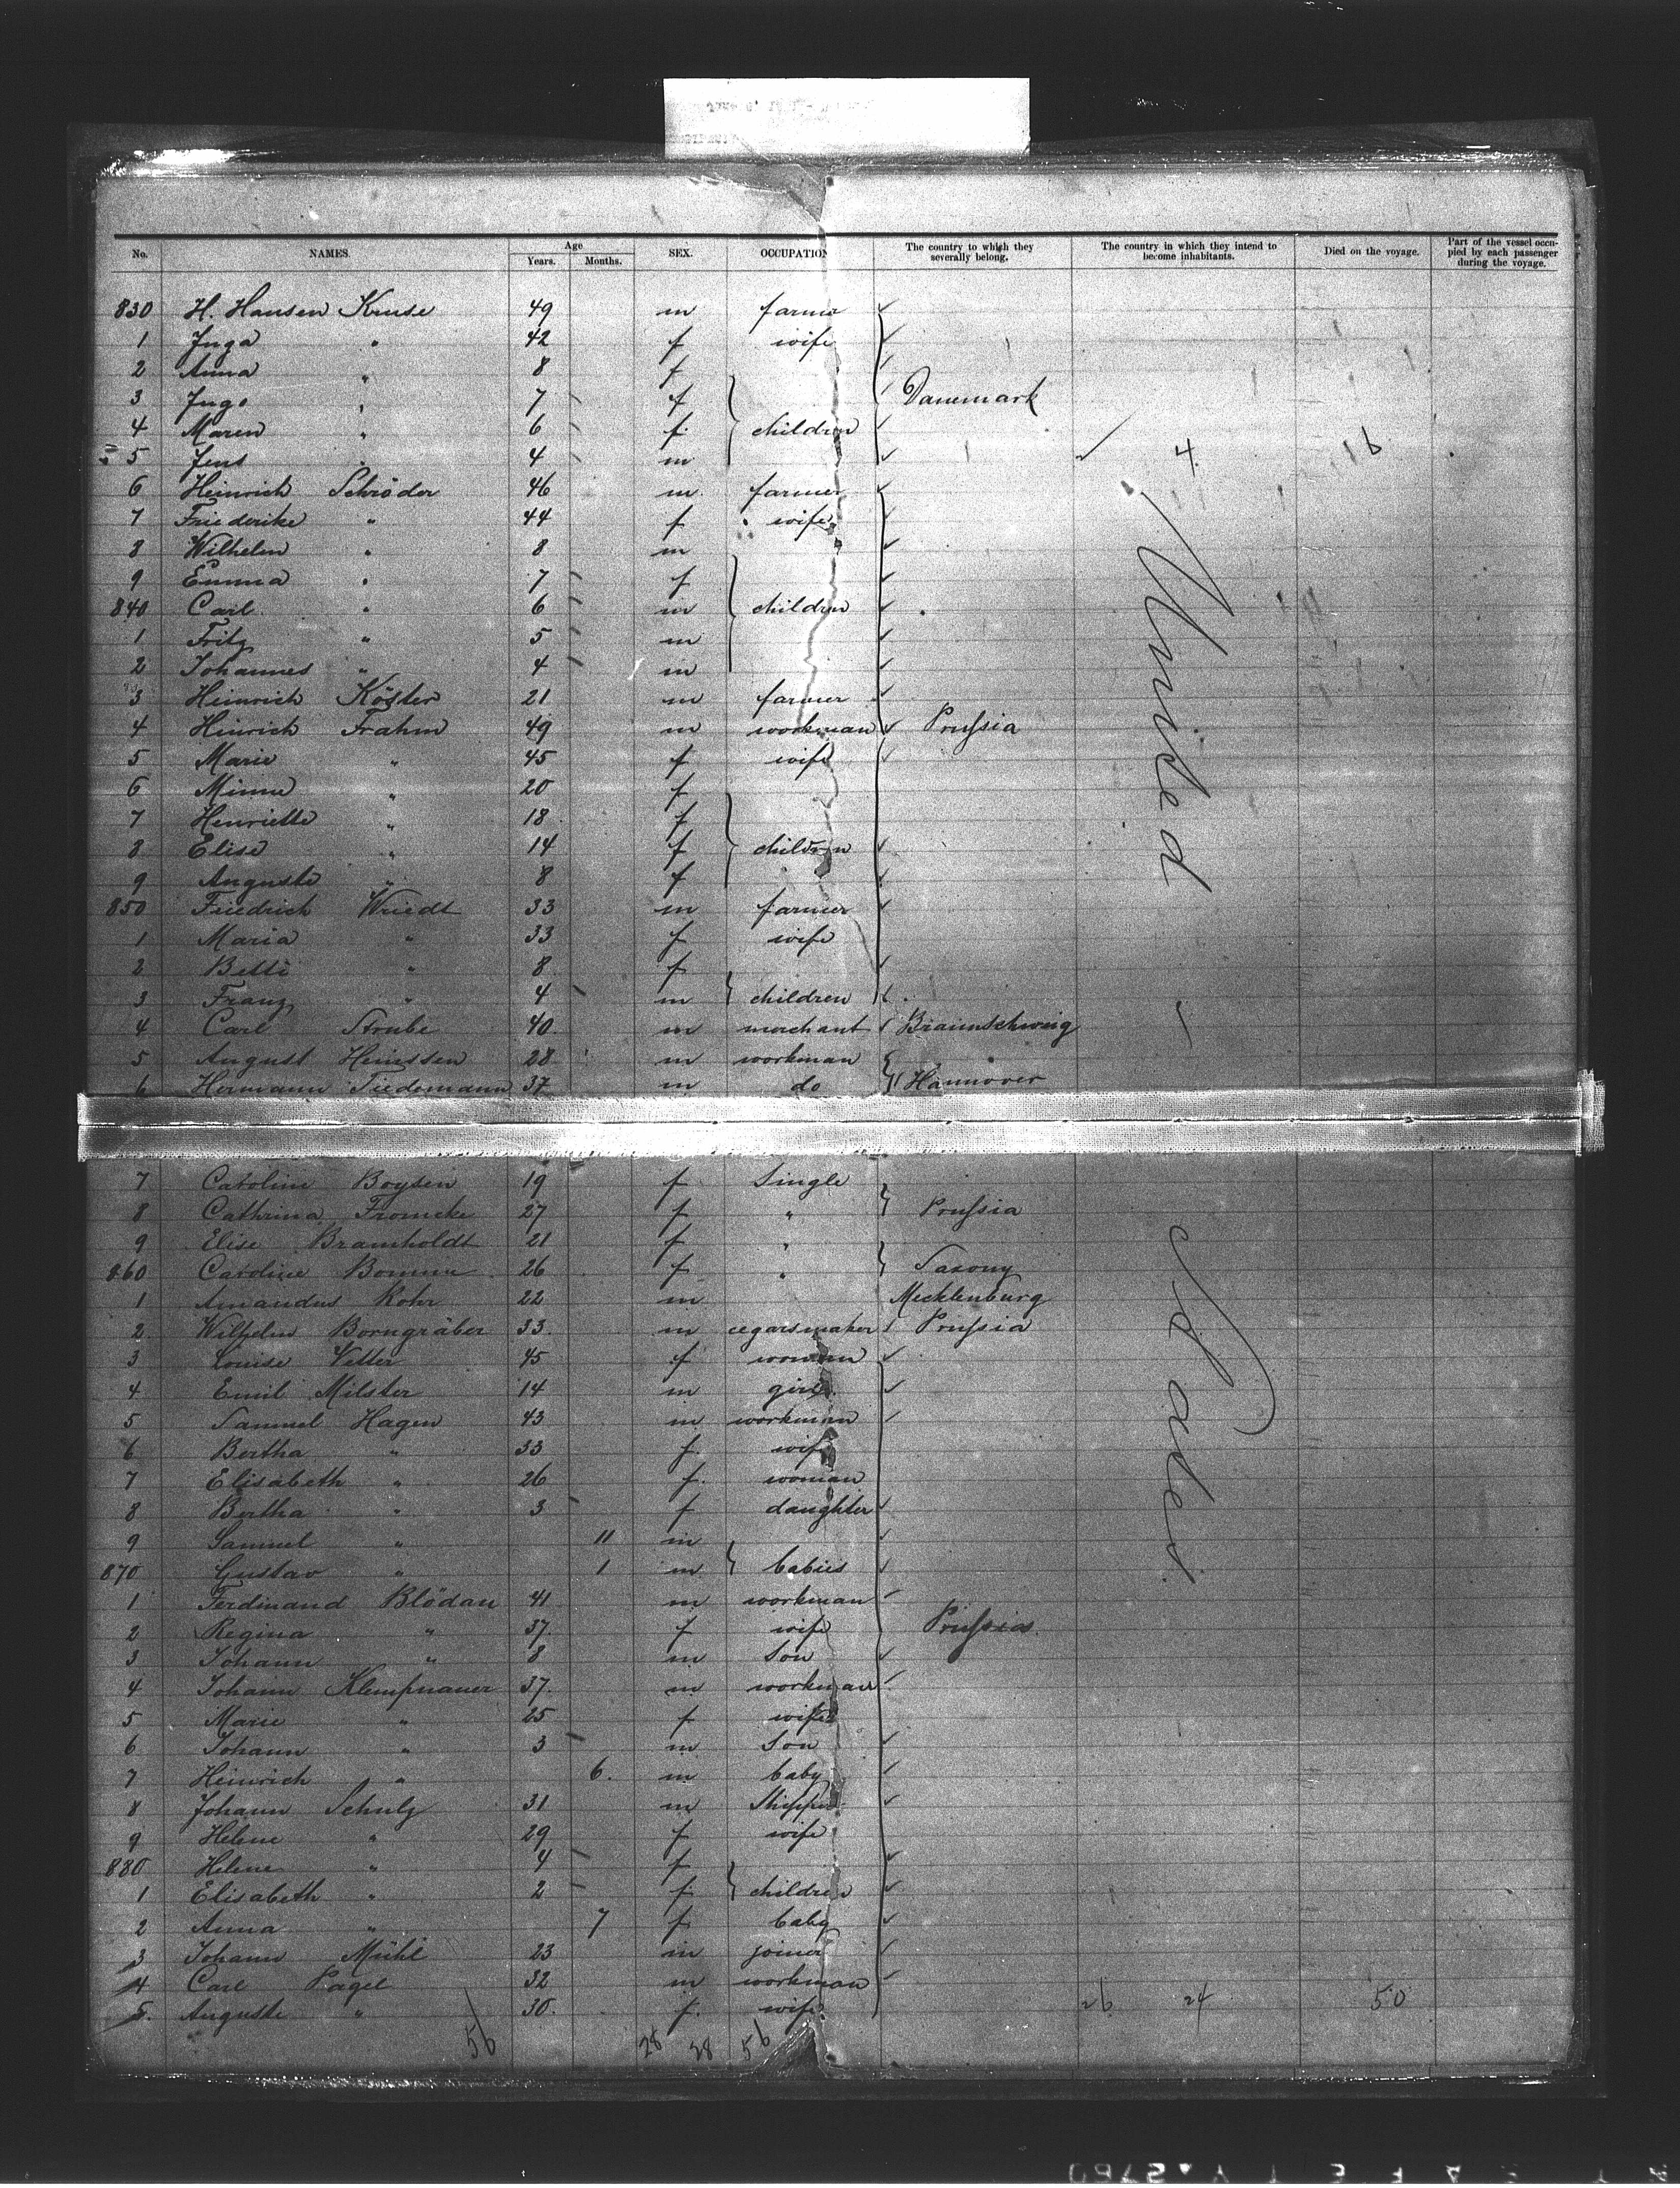 No. NAMES. Age Years. Months. SEX. OCCUPATION The country to which they severally belong. The country in which they intend to become inhabitants. Died on the voyage. Part of the vessel occupied by each passenger during the voyage.
830 H. Hansen Kruse 49 m farmer
1 Inga " 42 f wife
2 Anna " 8 f
3 Inge " 7 f Danemark
4 Maren " 6 f children
5 Jens " 4 m 4 16
6 Heinrich Schröder 46 m farmer
7 Friederike " 44 f wife
8 Wilhelm " 8 m
9 Emma " 7 f
840 Carl " 6 m children
1 Fritz " 5 m
2 Johannes " 4 m
3 Heinrich Köster 21 m farmer
4 Hinrich Frahm 49 m workman Prussia United
5 Marie " 45 f wife
6 Minna " 20 f
7 Henriette " 18 f
8 Elise " 14 f children
9 Auguste " 8 f
850 Friedrich Wriedt 33 m farmer
1 Maria " 33 f wife
2 Betti " 8 f
3 Franz " 4 m children
4 Carl Strube 40 m merchant Braunschweig
5 August Heinssen 28 m workman
6 Hermann Tiedemann 37 m do Hannover
7 Caroline Boysen 19 f Single
8 Cathrina Fromcke 27 f " Prussia
9 Elise Bramholdt 21 f "
860 Caroline 26 f " Saxony
1 Amandus Rohr 22 m Mecklenburg
2 Wilhelm Borngräber 33 m cegarsmaker Prussia
3 Louise Vetter 45 f woman
4 Emil Milster 14 m girl States
5 Samuel Hagen 43 m workman
6 Bertha " 33 f. wife
7 Elisabeth " 26 f. woman
8 Bertha " 3 f daughter
9 Samuel " 11 m
870 Gustav " 1 m babies
1 Ferdinand Blödau 41 m workman
2 Regina " 37. f wife Prussia
3 Johann " 8 m Son
4 Johann Klempnauer 37. m workman
5 Marie " 25 f wife
6 Johann " 3 m Son
7 Heinrich " 6. m baby
8 Johann Schulz 31 m Shipper
9 Helene " 29 f wife
880 Helene " 4 f
1 Elisabeth " 2 f children
2 Anna " 7 f baby
3 Johann Mühl 23 m joiner
4 Carl Pagel 32 m workman
5. Auguste " 30. f. wife 26 24 50
56 28 28 56